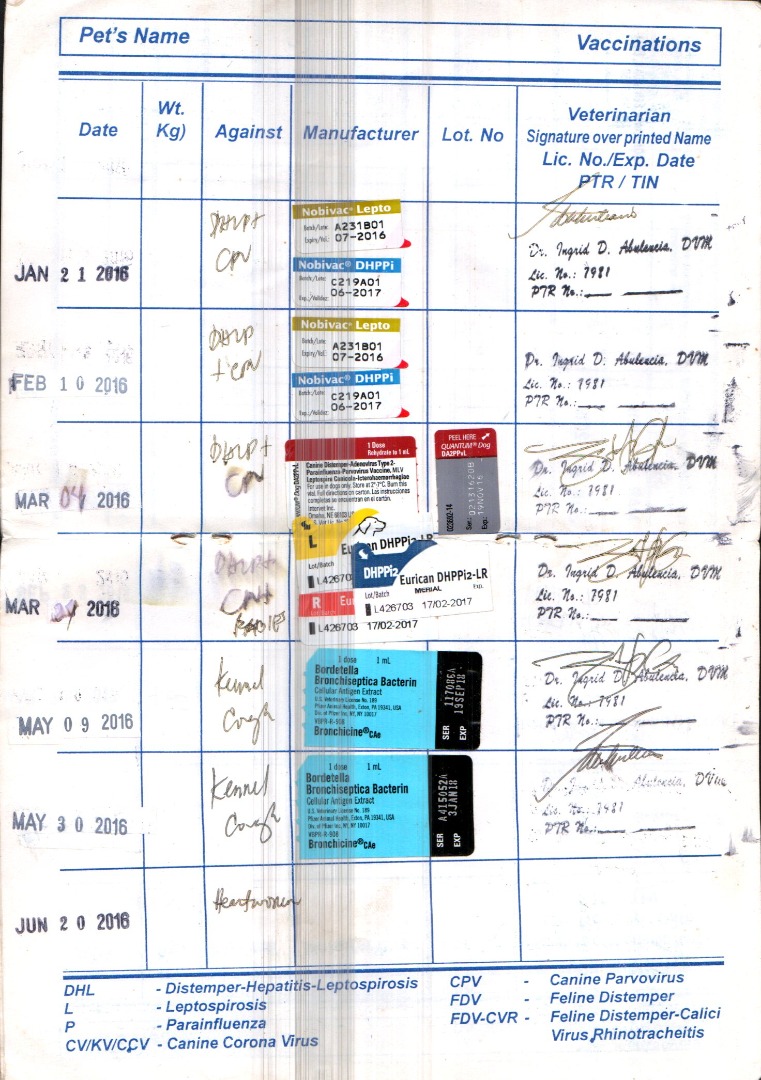 Pet's Name Vaccinations
Date Wt. Kg) Against Manufacturer Lot. No Veterinarian
Signature over printed Name
Lic. No./Exp. Date
PTR / TIN
JAN 21 2016
DHLP+
CPV
Nobivac® Lepto
Batch/Lote: A231B01
07-2016
Nobivac® DHPPi
C219A01
06-2017
Dr. Ingrid D. Abulencia, DVM
Lic. No.: 7981
PTR No.:
FEB 10 2016
DHLP
+ CPV
Nobivac® Lepto
A231B01
07-2016
Nobivac® DHPPi
C219A01
06-2017
Dr. Ingrid D. Abulencia, DVM
Lic. No.: 7981
PTR No.:
MAR 04 2016
DHLP+
CPV
1 Dose
Rehydrate to 1 mL
Canine Distemper-Adenovirus Type 2-
Parainfluenza-Parvovirus Vaccine, MLV
Leptospira Canicola-Icterohaemorrhagiae
For use in dogs only. Store at 2°-7°C. Burn this
vial. Full directions on carton. Las instrucciones
completas se encuentran en el cartón.
Intervet Inc.
PEEL HERE
QUANTUM® Dog
DA2PPvL
Ser. 02131620B
Exp. 19NOV16
Dr. Ingrid D. Abulencia, DVM
Lic. No.: 7981
PTR No.:
MAR 2016
DHLP+
CPV+
RABIES
L
Lot/Batch
L426703
DHPPi2
Eurican DHPPi2-LR
MERIAL
Lot/Batch Exp.
L426703 17/02-2017
R
L426703 17/02-2017
Dr. Ingrid D. Abulencia, DVM
Lic. No.: 7981
PTR No.:
MAY 09 2016
Kennel
Cough
1 dose 1 mL
Bordetella
Bronchiseptica Bacterin
Cellular Antigen Extract
U.S. Veterinary License No. 189
Pfizer Animal Health, Exton, PA 19341, USA
Div. of Pfizer Inc, NY, NY 10017
Bronchicine® CAe
SER 117086A
EXP 19SEP18
Dr. Ingrid D. Abulencia, DVM
Lic. No.: 7981
PTR No.:
MAY 30 2016
Kennel
Cough
1 dose 1 mL
Bordetella
Bronchiseptica Bacterin
Cellular Antigen Extract
U.S. Veterinary License No. 189
Pfizer Animal Health, Exton, PA 19341, USA
Div. of Pfizer Inc, NY, NY 10017
Bronchicine® CAe
SER A415052A
EXP 3JAN18
Dr. Ingrid D. Abulencia, DVM
Lic. No.: 7981
PTR No.:
JUN 20 2016
Heartworm
DHL - Distemper-Hepatitis-Leptospirosis
L - Leptospirosis
P - Parainfluenza
CV/KV/CCV - Canine Corona Virus
CPV - Canine Parvovirus
FDV - Feline Distemper
FDV-CVR - Feline Distemper-Calici
Virus Rhinotracheitis